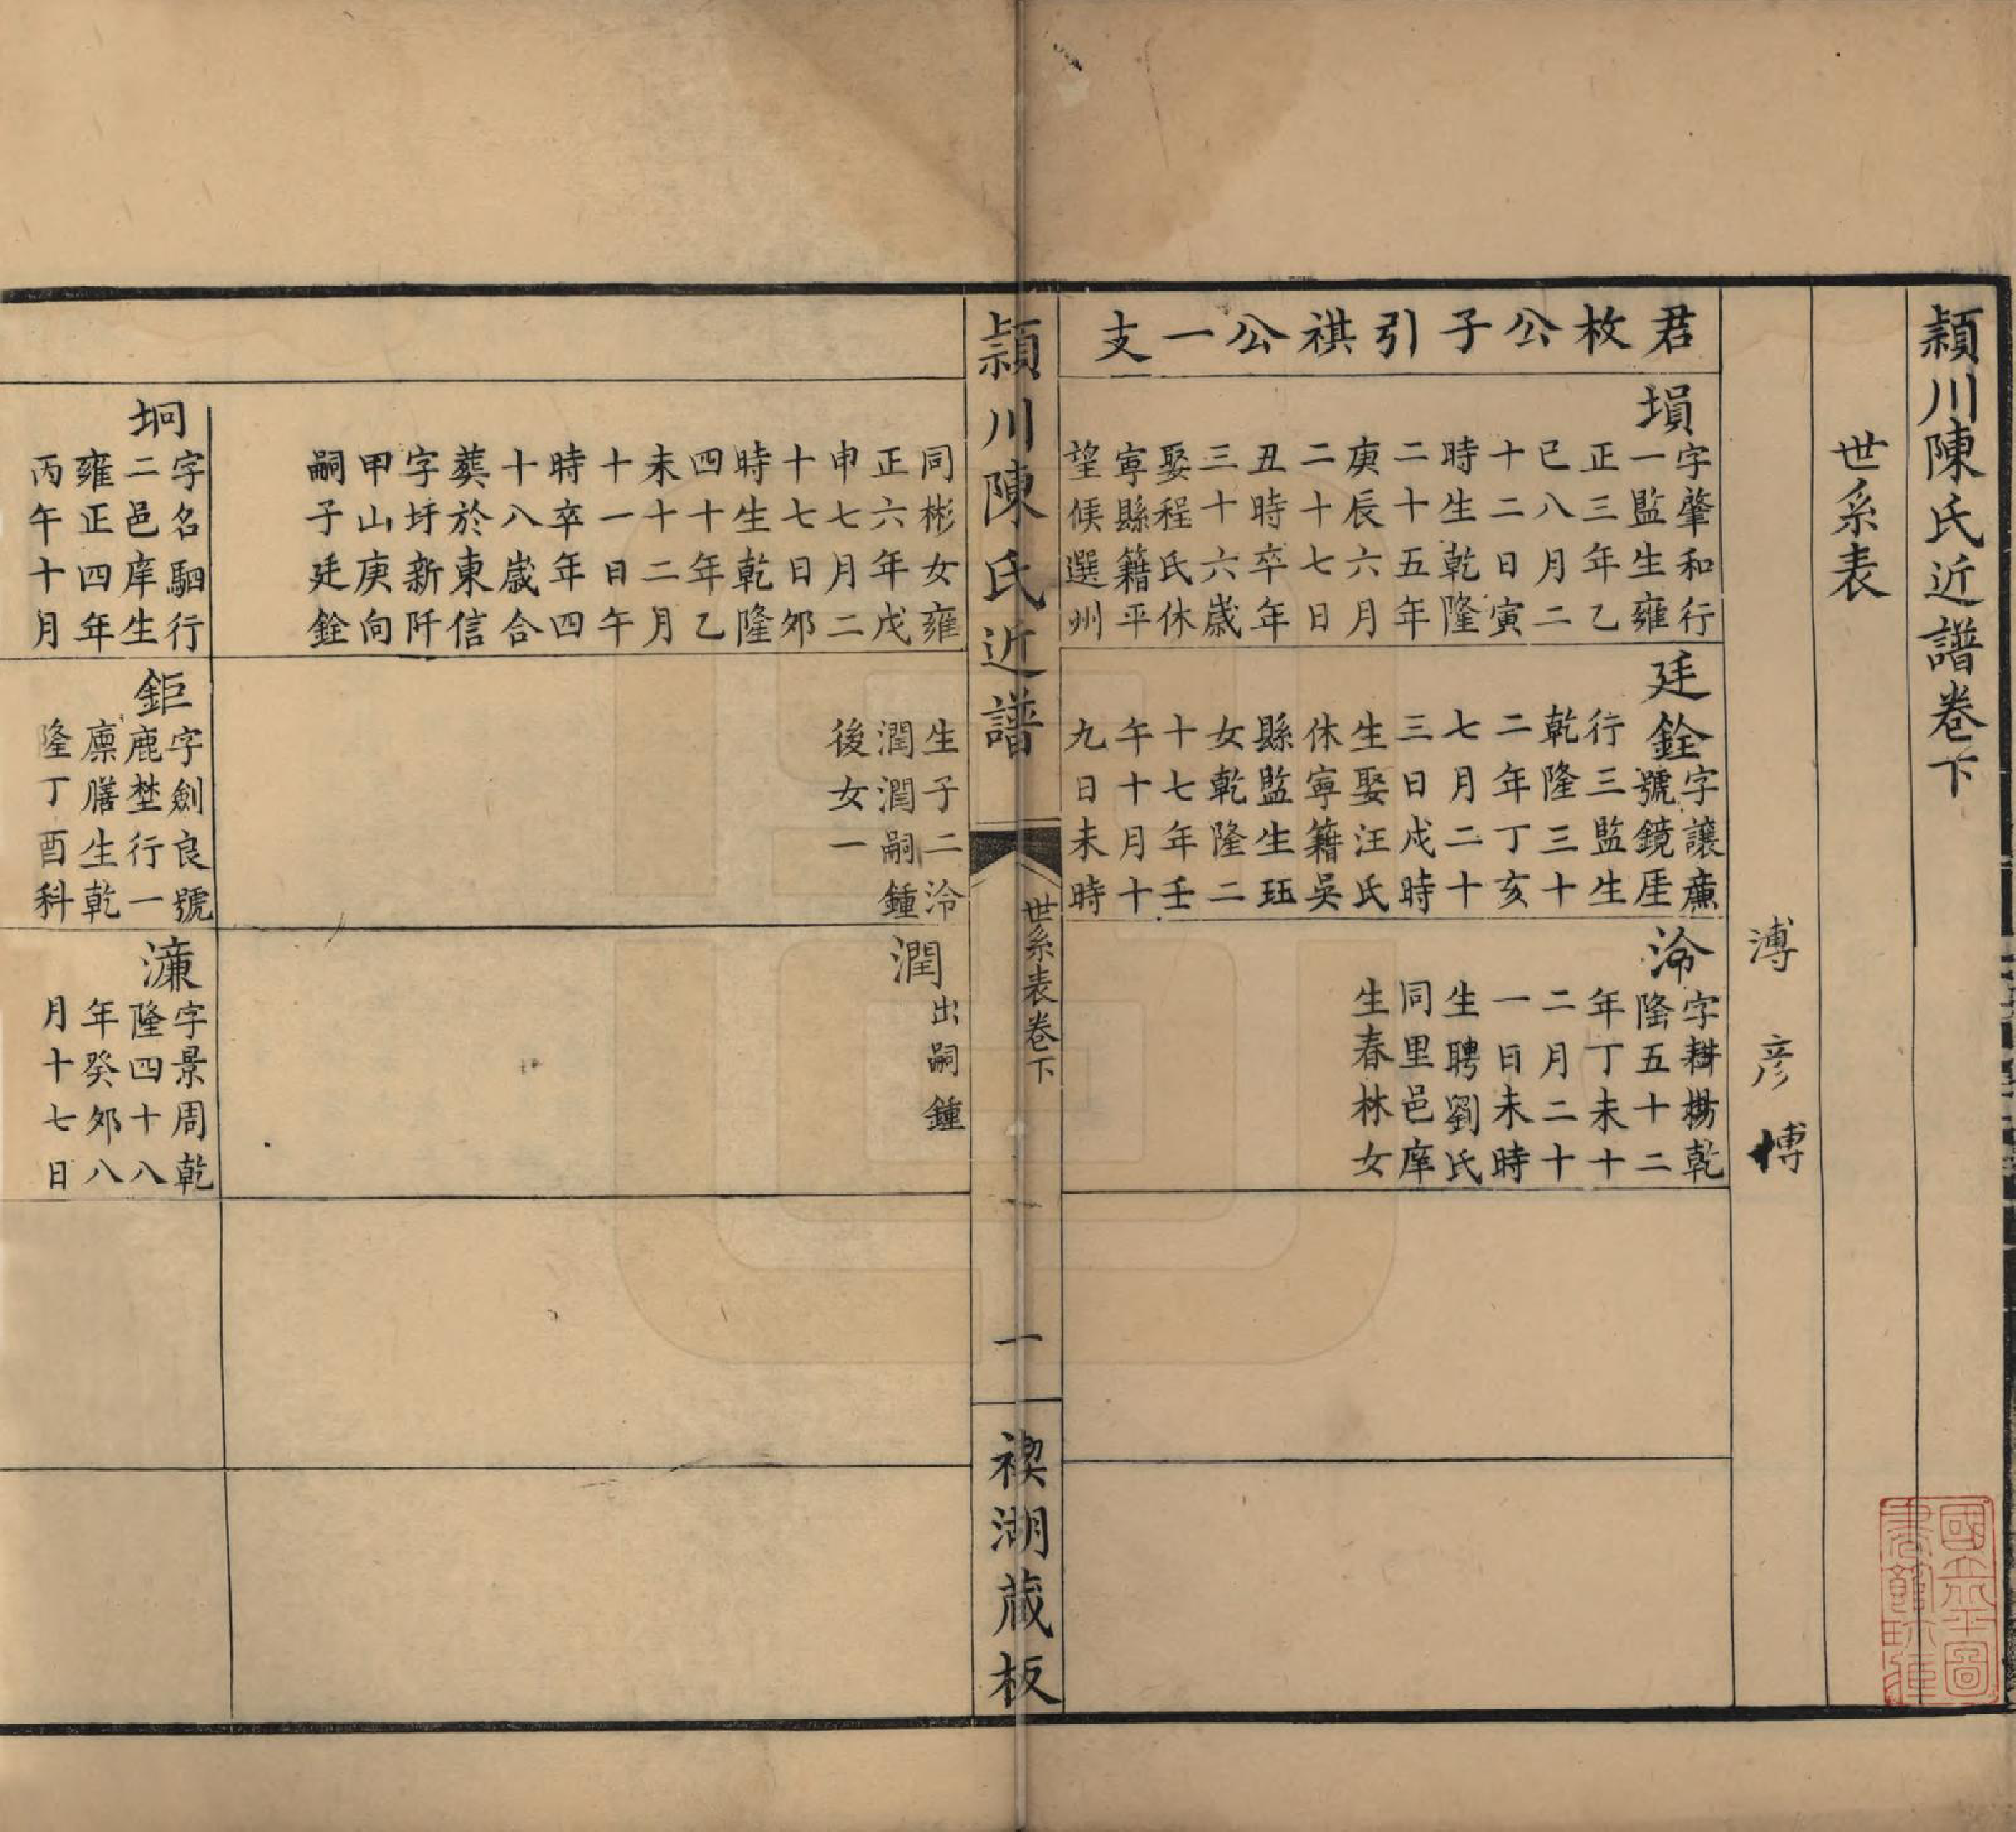 潁川陳氏近譜卷下
世系表
溥
彦
博
君枚公子引祺公一支
塤
字肇和行
一監生雍
正三年乙
巳八月二
十二日寅
時生乾隆
二十五年
庚辰六月
二十七日
丑時卒年
三十六歲
娶程氏休
寧縣籍平
望候選州
廷銓
字讓薫
號鏡厓
行三監生
乾隆三十
二年丁亥
七月二十
三日戌時
生娶汪氏
休寧籍吳
縣監生珏
女乾隆二
十七年壬
午十月十
九日未時
泠
字耕揚乾
隆五十二
年丁未十
二月二十
一日未時
生聘劉氏
同里邑庠
生春林女
潁川陳氏近譜
世系表卷下
一
禊湖蔵板
同彬女雍
正六年戊
申七月二
十七日夘
時生乾隆
四十年乙
未十二月
十一日午
時卒年四
十八歲合
葬於東信
字圩新阡
甲山庚向
嗣子廷銓
生子二泠
潤潤嗣鍾
後女一
潤
出嗣鍾
坰
字名駉行
二邑庠生
雍正四年
丙午十月
鉅
字劍良號
鹿埜行一
廪膳生乾
隆丁酉科
濂
字景周乾
隆四十八
年癸夘八
月十七日
國立北平圖
書館珍藏